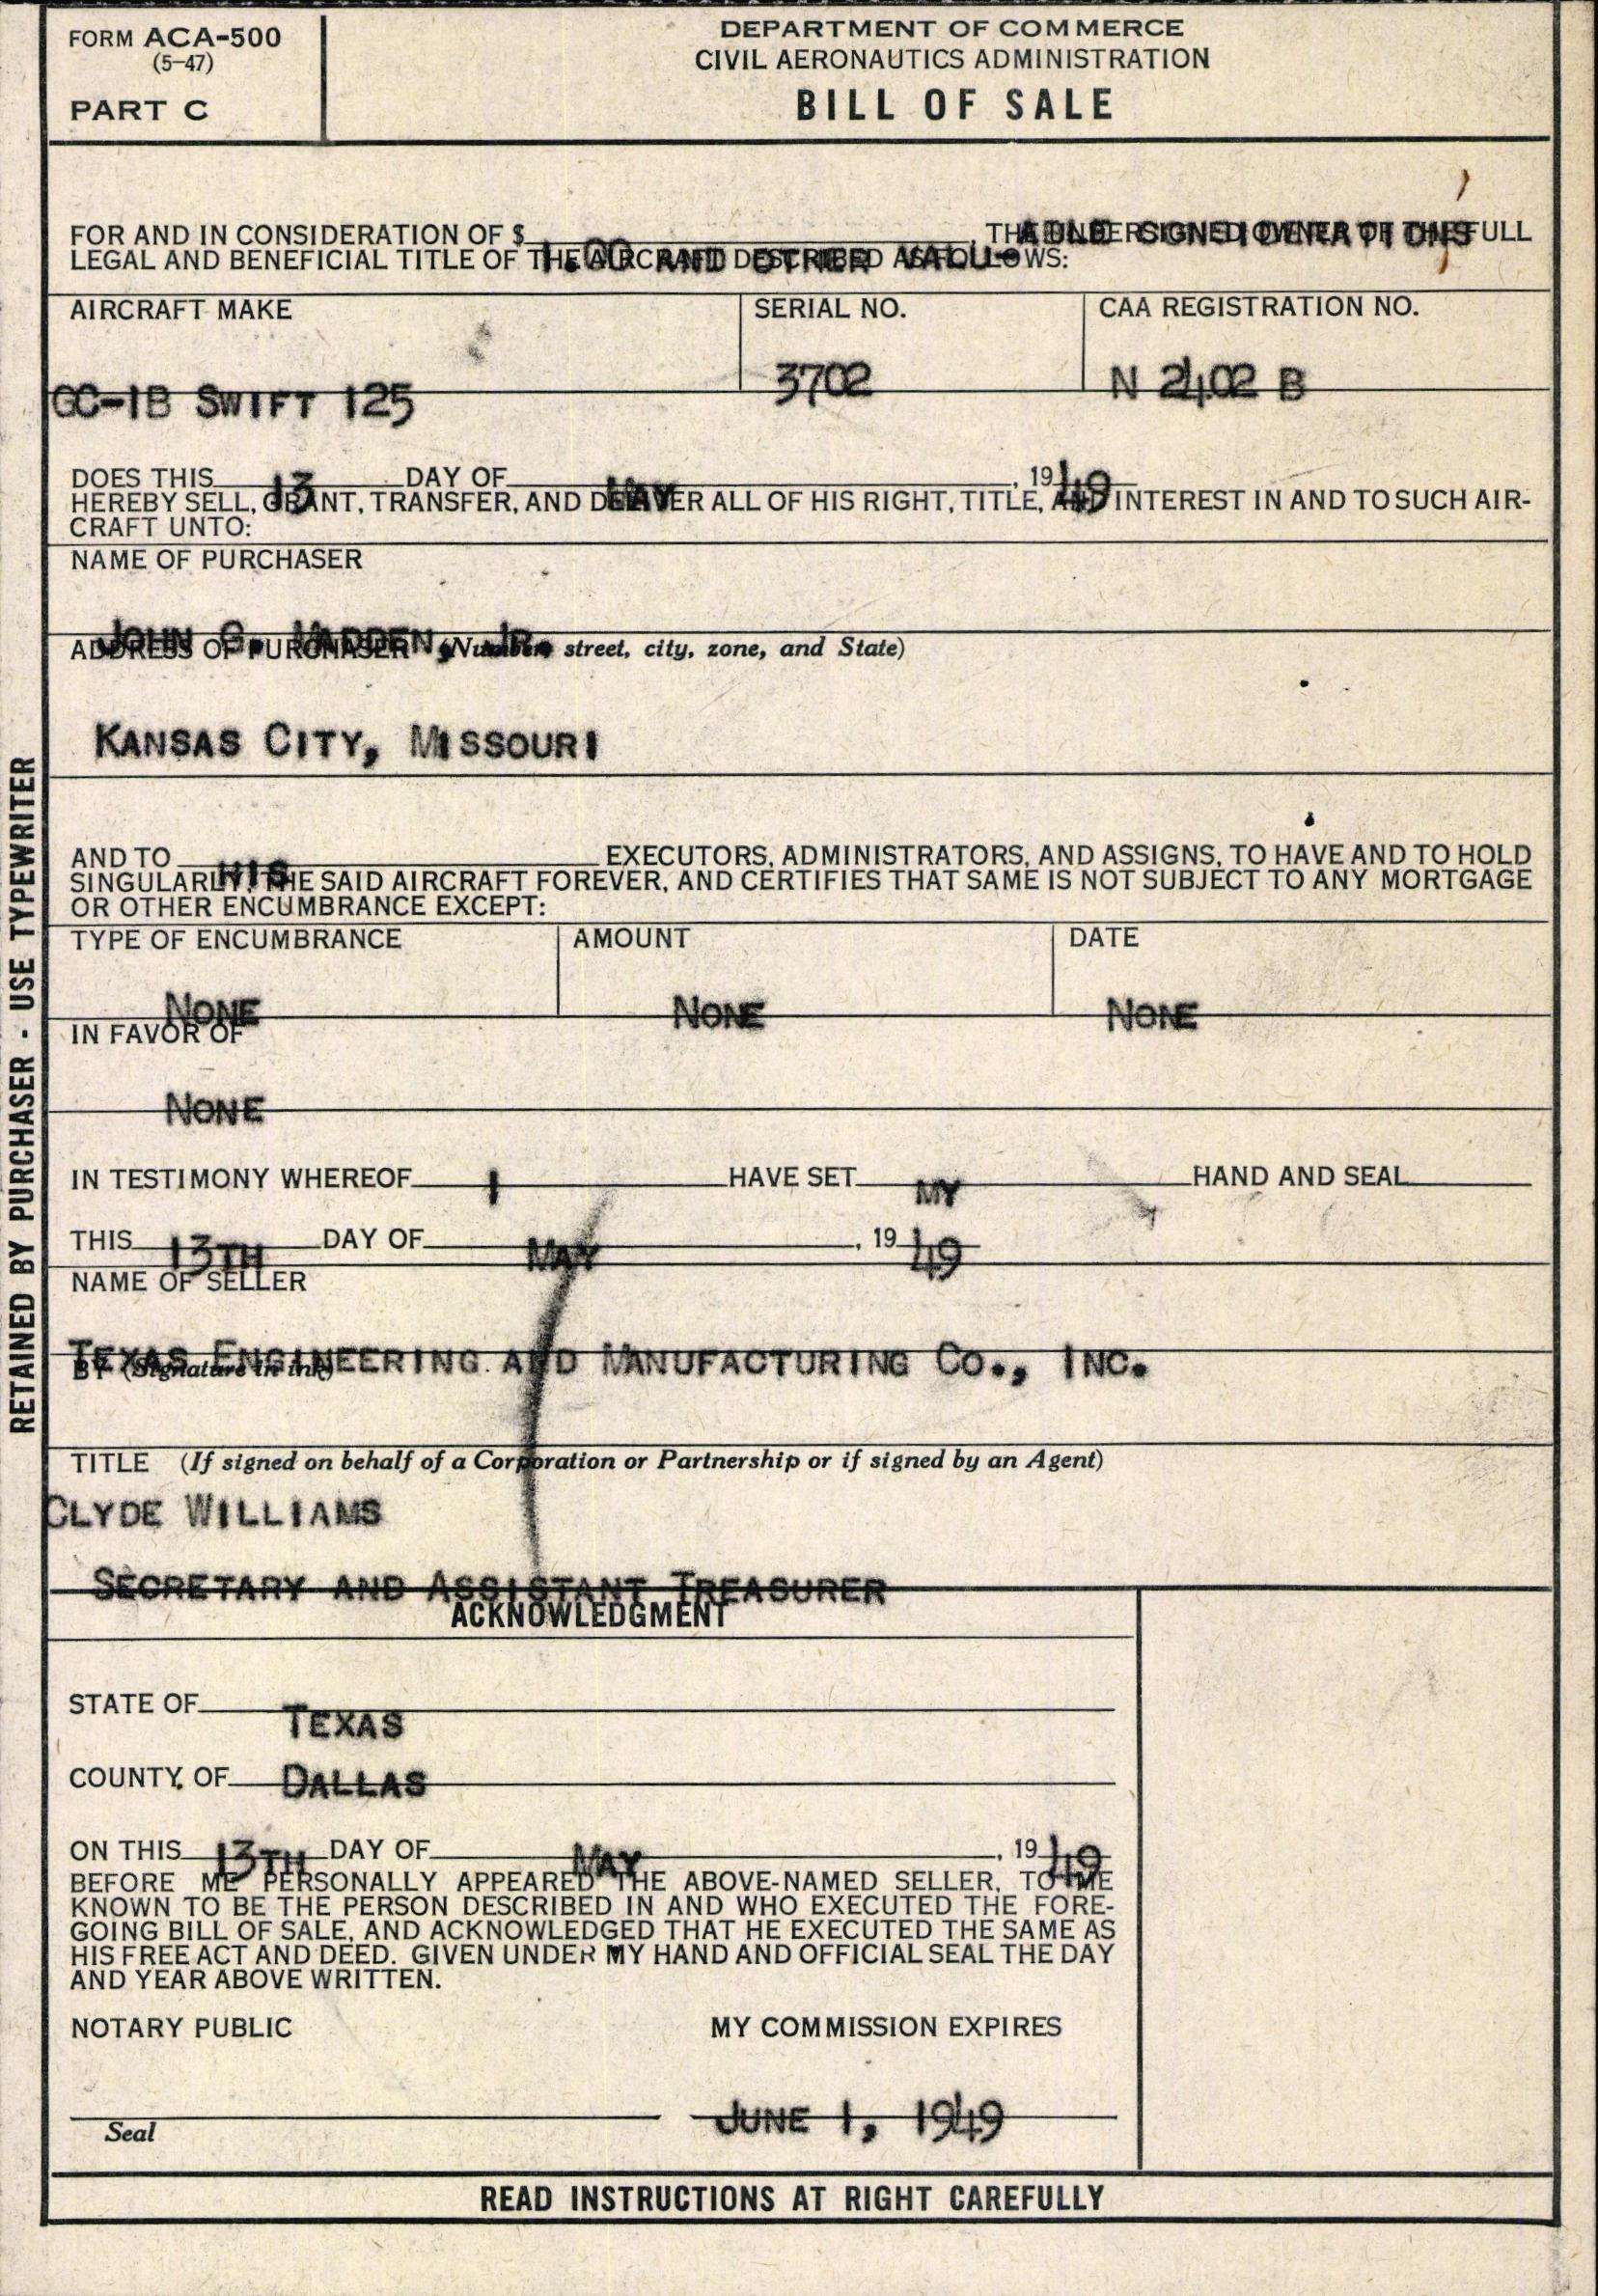 FORM ACA-500
(5-47)
PART C
DEPARTMENT OF COMMERCE
CIVIL AERONAUTICS ADMINISTRATION
BILL OF SALE
FOR AND IN CONSIDERATION OF $ THE UNDERSIGNED OWNER OF THE FULL
LEGAL AND BENEFICIAL TITLE OF THE AIRCRAFT DESCRIBED AS FOLLOWS:
1.00 AND OTHER VALU-
ABLE CONSIDERATIONS
AIRCRAFT MAKE
SERIAL NO.
CAA REGISTRATION NO.
GC-1B SWIFT 125
3702
N 2402 B
DOES THIS 13 DAY OF MAY, 1949
HEREBY SELL, GRANT, TRANSFER, AND DELIVER ALL OF HIS RIGHT, TITLE, AND INTEREST IN AND TO SUCH AIR-
CRAFT UNTO:
NAME OF PURCHASER
JOHN G. MADDEN, JR.
ADDRESS OF PURCHASER (Number, street, city, zone, and State)
KANSAS CITY, MISSOURI
AND TO HIS EXECUTORS, ADMINISTRATORS, AND ASSIGNS, TO HAVE AND TO HOLD
SINGULARLY THE SAID AIRCRAFT FOREVER, AND CERTIFIES THAT SAME IS NOT SUBJECT TO ANY MORTGAGE
OR OTHER ENCUMBRANCE EXCEPT:
TYPE OF ENCUMBRANCE
AMOUNT
DATE
NONE
NONE
NONE
IN FAVOR OF
NONE
IN TESTIMONY WHEREOF I HAVE SET MY HAND AND SEAL
THIS 13TH DAY OF MAY, 1949
NAME OF SELLER
TEXAS ENGINEERING AND MANUFACTURING CO., INC.
BY (Signature in ink)
TITLE (If signed on behalf of a Corporation or Partnership or if signed by an Agent)
CLYDE WILLIAMS
SECRETARY AND ASSISTANT TREASURER
ACKNOWLEDGMENT
STATE OF TEXAS
COUNTY OF DALLAS
ON THIS 13TH DAY OF MAY, 1949
BEFORE ME PERSONALLY APPEARED THE ABOVE-NAMED SELLER, TO ME
KNOWN TO BE THE PERSON DESCRIBED IN AND WHO EXECUTED THE FORE-
GOING BILL OF SALE, AND ACKNOWLEDGED THAT HE EXECUTED THE SAME AS
HIS FREE ACT AND DEED. GIVEN UNDER MY HAND AND OFFICIAL SEAL THE DAY
AND YEAR ABOVE WRITTEN.
NOTARY PUBLIC
MY COMMISSION EXPIRES
JUNE 1, 1949
Seal
READ INSTRUCTIONS AT RIGHT CAREFULLY
RETAINED BY PURCHASER - USE TYPEWRITER